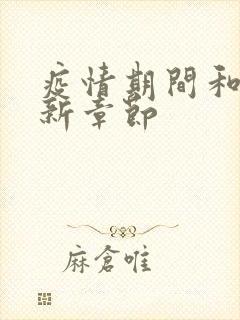 疫情期間和
新章節
麻倉唯